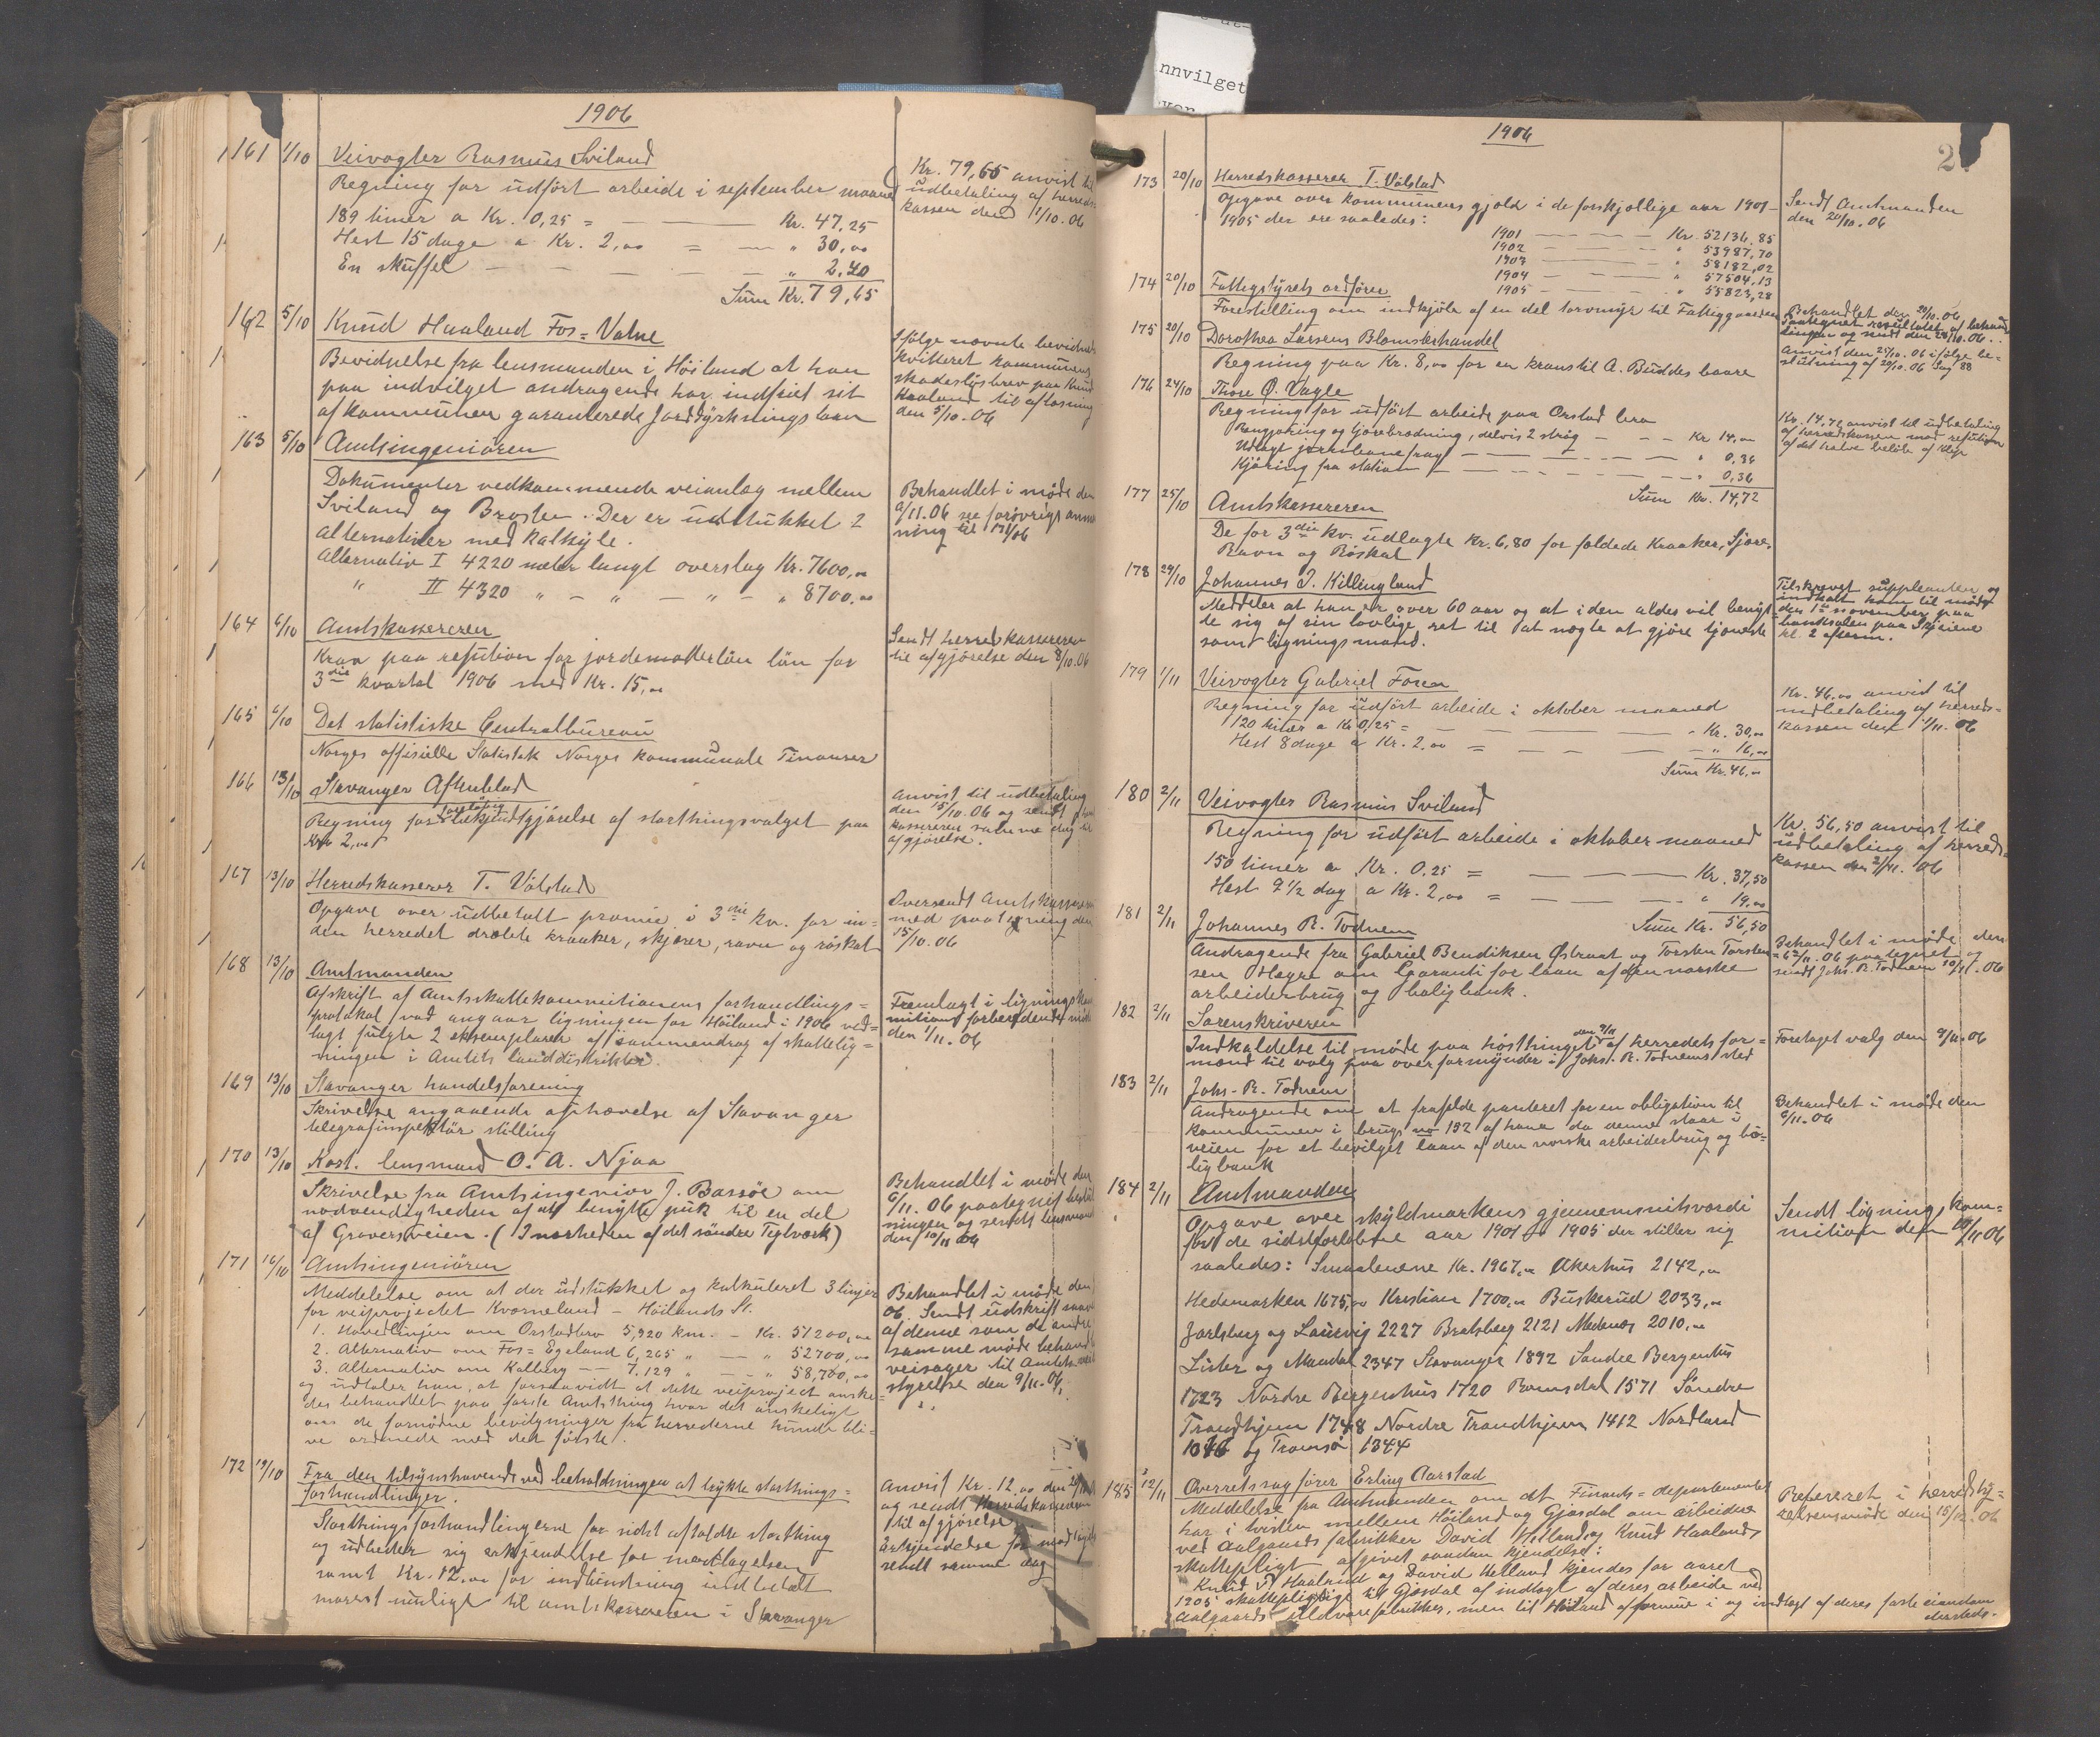 1906
161 1/10 Veivogter Rasmus Sviland
Regning for udført arbeide i september maaned
189 timer a Kr. 0,25 = Kr. 47,25
Hest 15 dage a Kr. 2,00 = " 30,00
En skuffel " 2,40
Sum Kr. 79,65
Kr. 79,65 anvist til
udbetaling af herreds-
kassen den 1/10.06
162 5/10 Knud Haaland Fos=Vatne
Bevidnelse fra lensmanden i Høiland at han
paa indvilget andragende har indfriet sit
af kommunen garanterede Jorddyrkningslaan
Ifølge nævnte bevidnelse
kvitteret kommunens
skadesløsbrev paa Knud
Haaland til aflæsning
den 5/10.06
163 5/10 Amtsingeniøren
Dokumenter vedkommende veianlæg mellem
Sviland og Brosten. Der er udstukket 2
alternativer med kalkyle.
Alternativ I 4220 meter langt overslag Kr. 7600,00
" II 4320 " - " - " - " 8700,00
Behandlet i møde den
6/11.06 see forøvrigt anmærk
ning til 171/06
164 6/10 Amtskassereren
Krav paa refution for jordemoderløn løn for
3die kvartal 1906 med Kr. 15,00
Sendt herredskassereren
til afgjørelse den 8/10.06
165 6/10 Det statistiske Centralbureau
Norges officielle Statistik Norges kommunale Finanser
166 13/10 Stavanger Aftenblad
foreløbig
Regning for bekjendtgjørelse af storthingsvalget paa
Kr. 2,00
Anvist til udbetaling
den 15/10.06 og sendt
kassereren samme dag til
afgjørelse.
167 13/10 Herredskasserer T. Vølstad
Opgave over udbetalt præmie i 3die kv. for in=
den herredet dræbte kraaker, skjærer, ravn og røskat
Oversendt Amtskassereren
med paategning den
15/10.06
168 13/10 Amtmanden
Afskrift af Amtsskattekommitionens forhandlings=
protokol, vad angaar ligningen for Høiland i 1906 ved=
lagt fulgte 2 exemplarer af sammendrag af skattelig=
ningen i Amtets landdistrikter.
Fremlagt i ligningskom
mitions forberedende møde
den 1/11.06
169 13/10 Stavanger handelsforening
Skrivelse angaaende ophævelse af Stavanger
telegrafinspektør stilling
170 13/10 Kost. lensmand O. A. Njaa
Skrivelse fra Amtsingeniør J. Bassøe om
nødvendigheden af at benytte puk til en del
af Graversveien. (I nærheden af det søndre Teglværk)
Behandlet i møde den
6/11.06 paategnet beslut
ningen og sendt lensmand
den 10/11 06
171 16/10 Amtsingeniøren
Meddelelse om at der udstukket og kalkuleret 3 linjer
for veiprojectet Kværneland - Høilands St.
1. Hovedlinjen om Orstadbro 5,920 km. - Kr. 51200,00
2. Alternativ om Fos=Egeland 6,265 " - " 52700,00
3. Alternativ om Kalberg - 7,129 " - " 58,700,00
og udtaler han, at forsaavidt at dette veiproject ønske=
des behandlet paa første Amtsthing var det ønskeligt
om de fornødne bevilgninger fra herrederne kunde bli=
ve ordnede med det første.
Behandlet i møde den
06. Sendt udskrift
af denne som de andre
samme møde behandlede
veisager til Amtets vei
styrelse den 9/11.06.
172 19/10 Fra den tilsynshavende ved beholdningen at trykte storthings=
forhandlinger.
Storthingsforhandlingerne for sidst afholdte storthing
og udbeder sig erkjendelse for modtagelsen
samt Kr. 12.00 for indbinding indbetalt
snarest muligt til amtskassereren i Stavanger
Anvist Kr. 12.00 den 20/10
og sendt Herredskassereren
til afgjørelse
Erkjendelse for modtagelsen
sendt samme dag
1906
2
173 20/10 Herredskasserer T. Vølstad
Opgave over kommunens gjæld i de forskjellige aar 1901-
1905 der ere saaledes:
1901 Kr. 52136,85
1902 " 53987,70
1903 " 58182,02
1904 " 57504,13
1905 " 55823,28
Sendt Amtmanden
den 20/10.06
174 20/10 Fattigstyrets ordfører
Forestilling om indkjøb af en del torvmyr til Fattiggaarden
Behandlet den 20/10.06
Paategnet resultatet af behand
lingen og sendt den 24/10.06.
175 20/10 Dorothea Larsens Blomsterhandel
Regning paa Kr. 8,00 for en krans til A. Buddes baare
Anvist den 21/10.06 ifølge be-
slutning af 20/10.06 Sag 88
176 24/10 Thore Ø. Vagle
Regning for udført arbeide paa Orstad bro
Rengjøring og tjærebredning, delvis 2 strøg Kr 14,00
Udlagt jernbanefragt " 0,36
Kjøring fra station " 0,36
Sum Kr. 14,72
Kr. 14,72 anvist til udbetaling
af herredskassen mod refution
af det halve beløb af Klep
177 25/10 Amtskassereren
De for 3die kv. udlagte Kr. 6,80 for fældede Kraaker, Skjære,
Ravn og Røskat
178 29/10 Johannes J. Killingland
Meddeler at han er over 60 aar og at i den aldes vil benyt
te sig af sin lovlige ret til at nægte at gjøre tjeneste
som ligningsmand.
Tilskrevet suppleanten og
indkalt ham til møde
den 1ste november paa
banksalen paa Skjeiene
kl. 2 efterm.
179 1/11 Veivogter Gabriel Foren
Regning for udført arbeide i oktober maaned
120 timer a Kr 0,25 = Kr. 30,00
Hest 8 dage a Kr. 2.00 = " 16,00
Sum Kr. 46,00
Kr. 46.00 anvist til
udbetaling af herreds=
kassen den 1/11.06
180 2/11 Veivogter Rasmus Sviland
Regning for udført arbeide i oktober maaned
150 timer a Kr. 0.25 = Kr. 37,50
Hest 9 1/2 dag a Kr. 2,00 = " 19.00
Sum Kr. 56,50
Kr. 56,50 anvist til
udbetaling af herreds=
kassen den 2/11.06
181 2/11 Johannes R. Todnem
Andragende fra Gabriel Bendiksen Østraat og Torsten Torsten
sen Høgre om Garanti for laan af den norske
arbeiderbrug og boligbank.
Behandlet i møde den
6/11.06 paategnet og
sendt Johs. R. Todnem 10/11.06
182 2/11 Sorenskriveren
den 9/11
Indkaldelse til møde paa høstthinget af herredets for=
mænd til valg paa overformynder i Johs. R. Todnems sted
Foretaget valg den 9/11.06
183 2/11 Johs. R. Todnem
Andragende om at frafalde panteret for en obligation til
kommunen i brugs no 132 af Hana da denne staar i
veien for et bevilget laan af den norske arbeiderbrug og bo=
ligbank
Behandlet i møde den
6/11.06
184 2/11 Amtmanden
Opgave over skyldmarkens gjennemsnitsværdi
for de sidstforløbne aar 1901 - 1905 der stiller sig
saaledes: Smaalenene Kr. 1967,00 Akerhus 2142,00
Hedemarken 1675,00 Kristian 1700,00 Buskerud 2033,00
Jarlsberg og Laurvig 2227 Bratsberg 2121 Nedenes 2010,00
Lister og Mandal 2347 Stavanger 1892 Søndre Bergenhus
1723 Nordre Bergenhus 1720 Romsdal 1571 Søndre
Trondhjem 1748 Nordre Trondhjem 1412 Nordland
1046 og Tromsø 1344
Sendt ligningskom=
mition den 10/11 06
185 12/11 Overretssagfører Erling Aarstad
Meddelelse fra Amtmanden om at Finants=departementet
har i tvisten mellem Høiland og Gjæsdal om arbeidere
ved Aalgaards fabrikker David Helland og Knud Haalands
skattepligt afgivet saadan kjendelse:
Knud J. Haaland og David Helland kjendes for aaret
1905 skattepligtige til Gjæsdal af indtægt af deres arbeide ved
Aalgaards Uldvarefabrikker, men til Høiland af formue i og indtægt af deres faste eiendom
dersteds.
Refereret i herredsty=
relsesmøde den 15/12.06
nnvilget